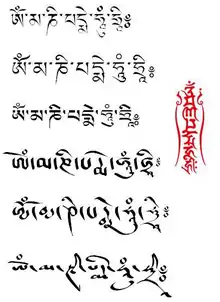 ཨོཾ་མ་ཎི་པདྨེ་ཧཱུྃ་ཧྲཱི༔
ཨོཾ་མ་ཎི་པདྨེ་ཧཱུྃ་ཧྲཱི༔
ཨོཾ་མ་ཎི་པདྨེ་ཧཱུྃ་ཧྲཱི༔
ཨོཾ་མ་ཎི་པདྨེ་ཧཱུྃ་ཧྲཱི༔
ཨོཾ་མ་ཎི་པདྨེ་ཧཱུྃ་ཧྲཱི༔
ཨོཾ་མ་ཎི་པདྨེ་ཧཱུྃ་ཧྲཱི༔